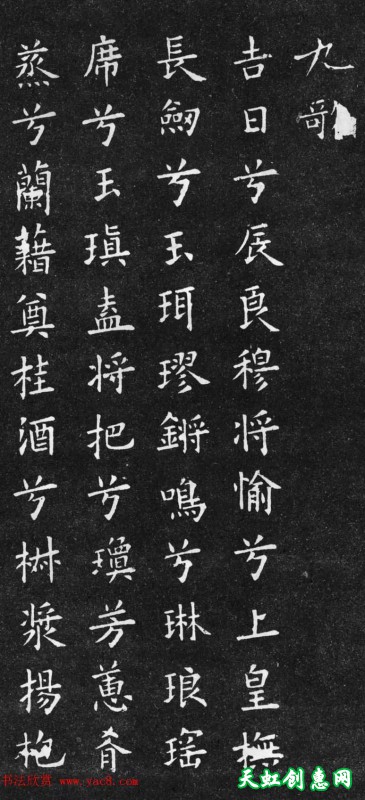 九歌
吉日兮辰良穆将愉兮上皇撫
長劒兮玉珥璆鏘鳴兮琳琅瑶
席兮玉瑱盍将把兮瓊芳蕙肴
蒸兮蘭藉奠桂酒兮椒漿揚枹
书法欣赏 www.yac8.com
天虹创惠网